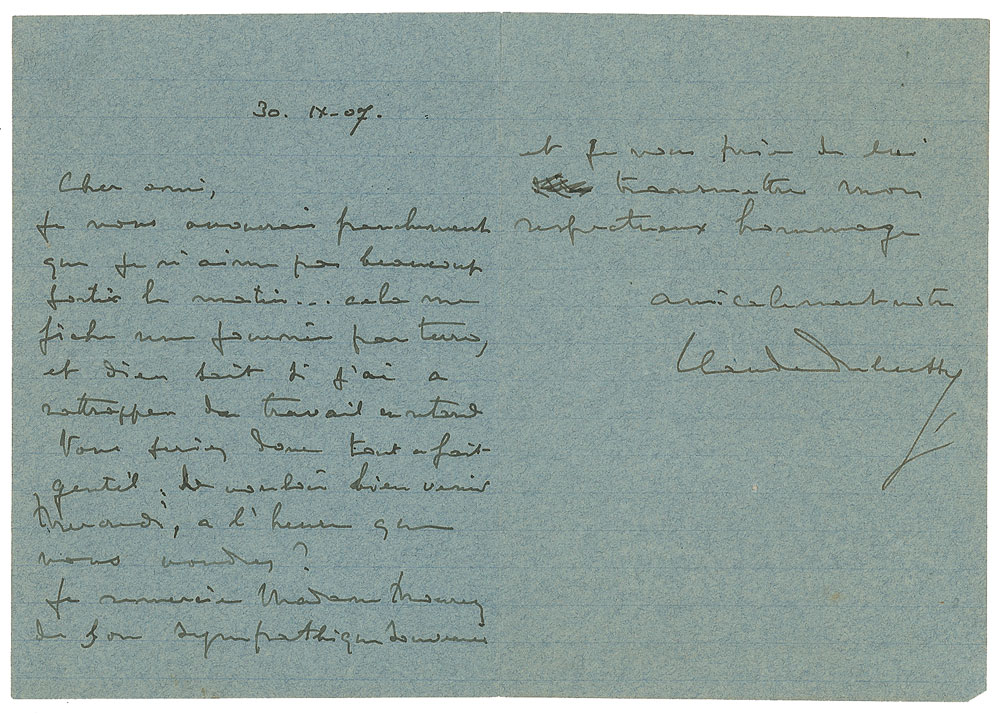 30. IX-07.
Cher ami,
Je vous avouerais franchement
que je n'aime pas beaucoup
sortir le matin... cela me
fiche une journée par terre,
et Dieu sait si j'ai a
rattrapper du travail en retard
Vous seriez donc tout a fait
gentil, de vouloir bien venir
Mercredi, a l'heure que
vous voudrez ?
Je remercie Madame Mourey
de son sympathique souvenir
et je vous prie de lui
transmettre mon
respectueux hommage
amicalement votre
Claude Debussy